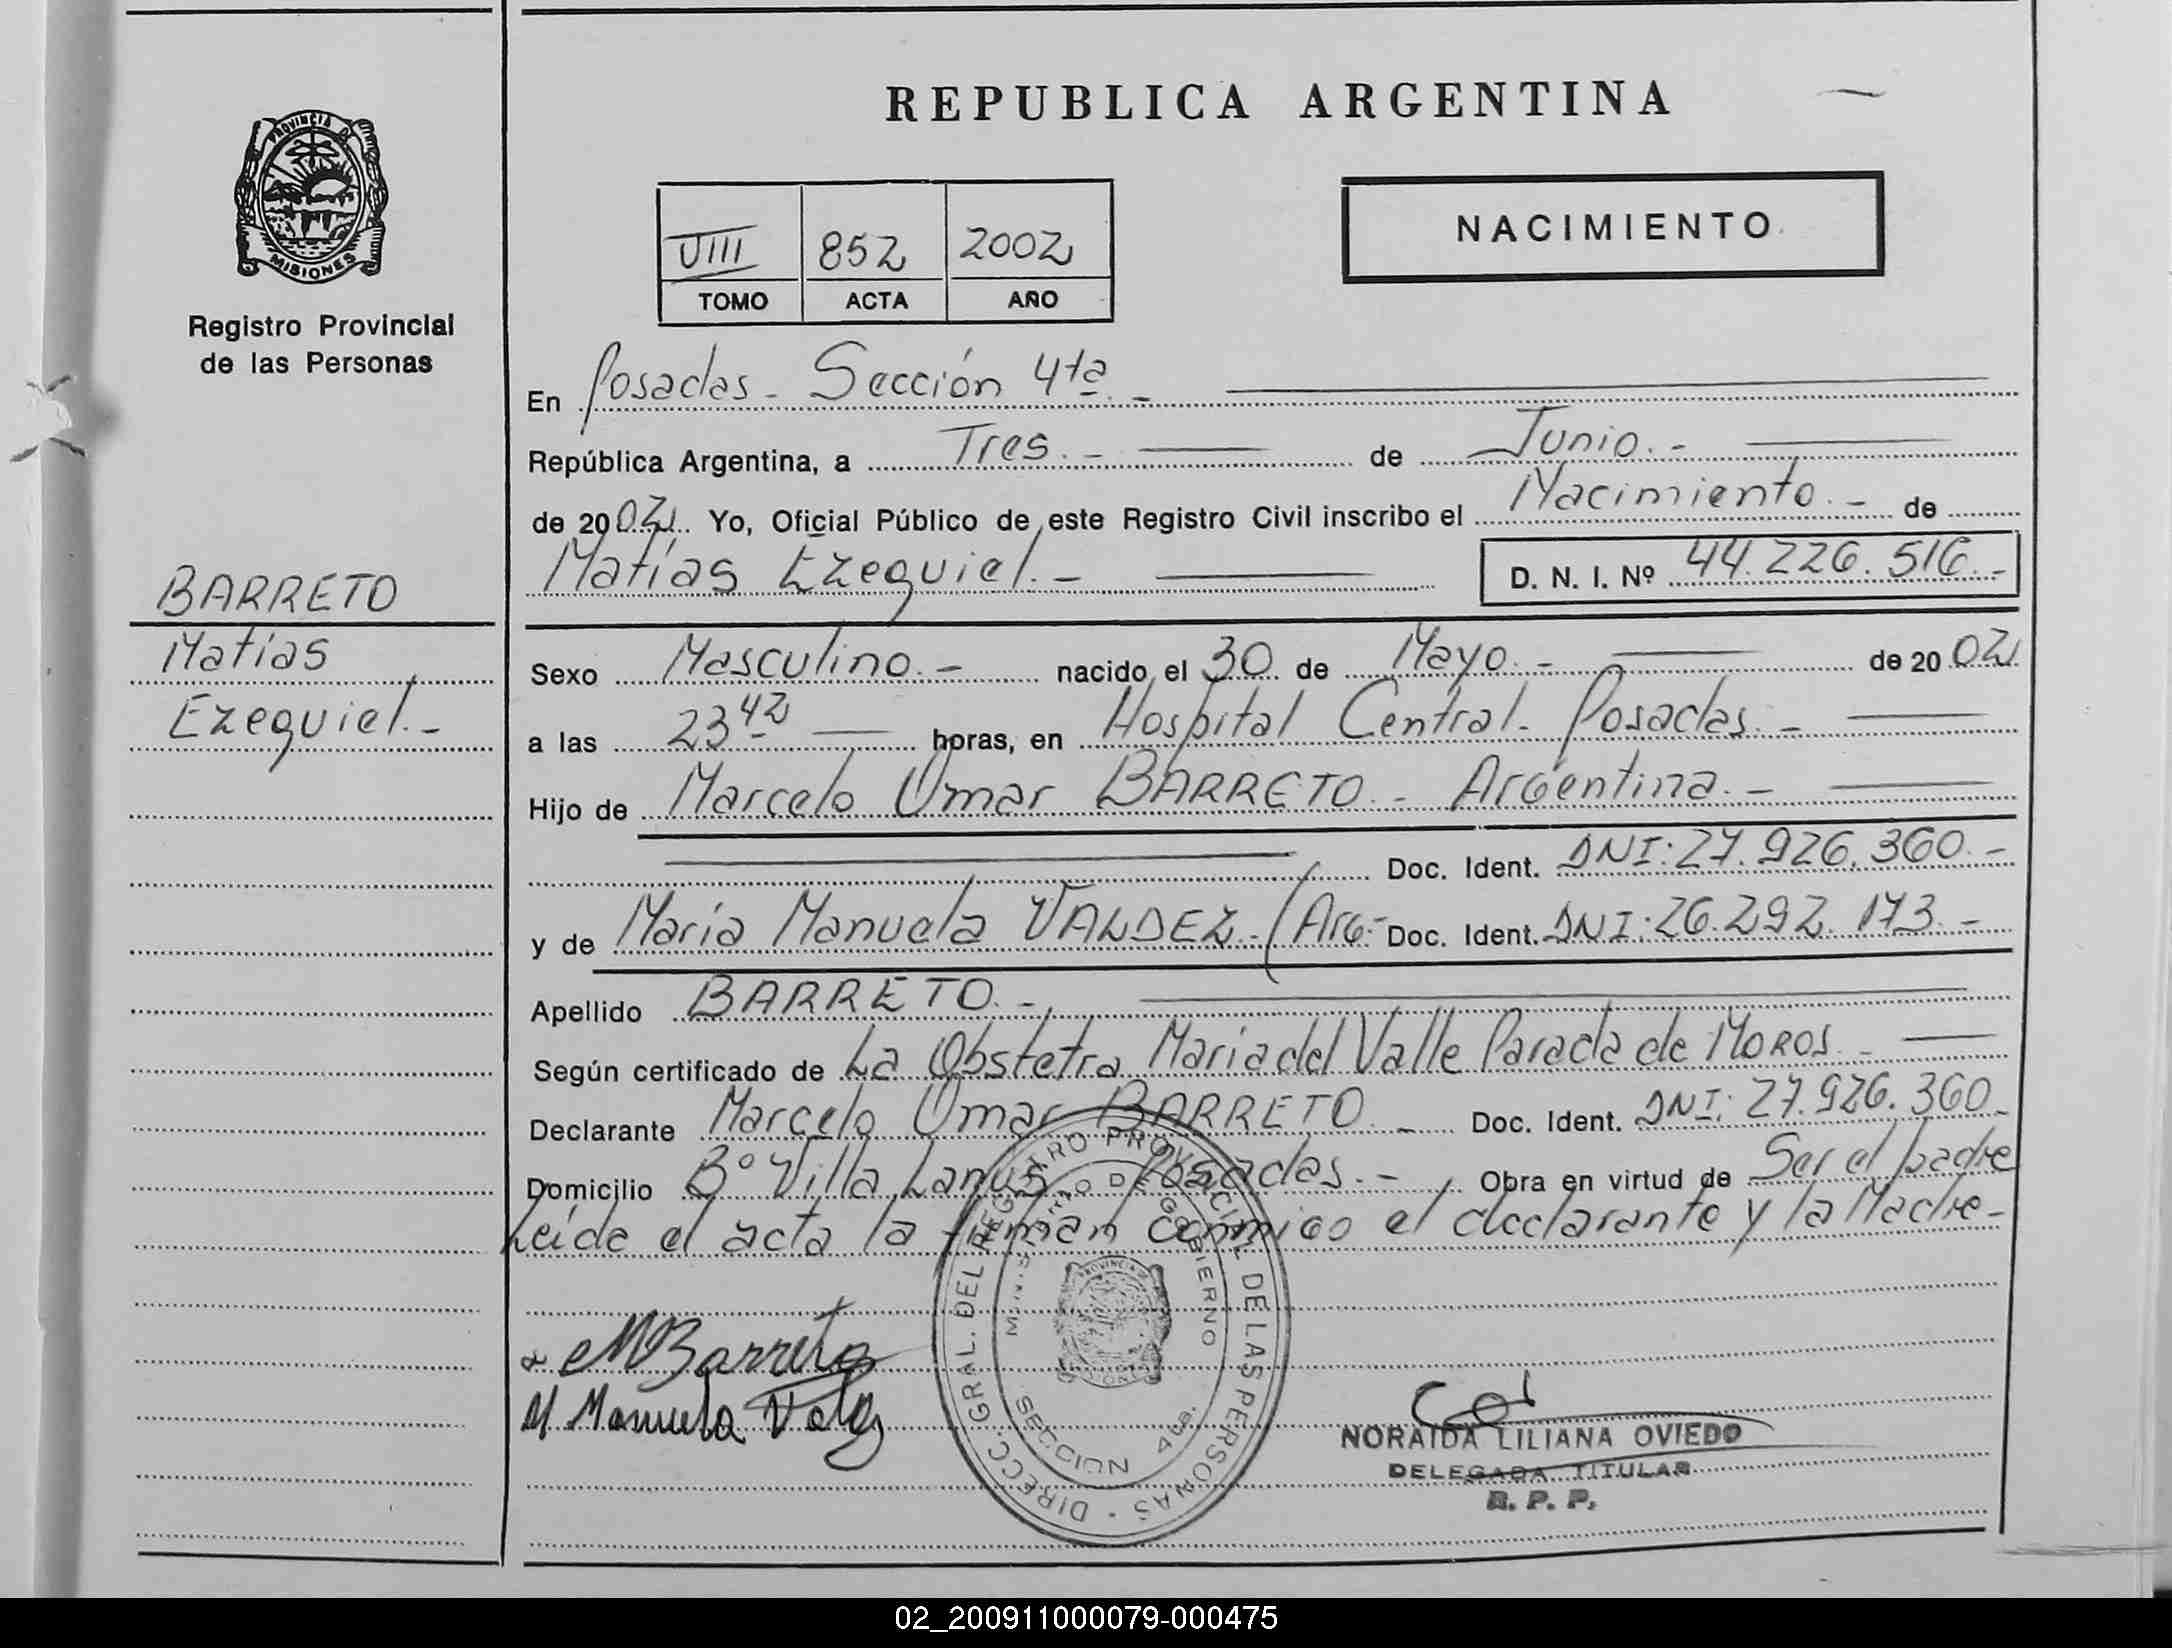 REPUBLICA ARGENTINA
PROVINCIA DE
MISIONES
Registro Provincial
de las Personas
VIII 852 2002
TOMO ACTA AÑO
NACIMIENTO
En Posadas - Sección 4ta. -
República Argentina, a Tres. - de Junio. -
de 2002 Yo, Oficial Público de este Registro Civil inscribo el Nacimiento. - de
Matías Ezequiel. - D. N. I. Nº 44.226.516. -
BARRETO
Matías
Ezequiel. -
Sexo Masculino. - nacido el 30 de Mayo. - de 2002
a las 23 42 horas, en Hospital Central - Posadas. -
Hijo de Marcelo Omar BARRETO - Argentina. -
Doc. Ident. DNI: 27.926.360. -
y de María Manuela VALDEZ - (Arg- Doc. Ident. DNI: 26.292.173. -
Apellido BARRETO. -
Según certificado de La Obstetra María del Valle Parada de MOROS -
Declarante Marcelo Omar BARRETO. - Doc. Ident. DNI: 27.926.360 -
Domicilio Bº Villa Lanús Posadas. - Obra en virtud de Ser el padre
Leída el acta la firman conmigo el declarante y la Madre -
MBarreto
M. Manuela Valdez
DIRECC. GRAL. DEL REGISTRO PROVINCIAL DE LAS PERSONAS
MINISTERIO DE GOBIERNO
PROVINCIA DE
MISIONES
SECCION 4ta.
NORAIDA LILIANA OVIEDO
DELEGADA TITULAR
R. P. P.
02_200911000079-000475